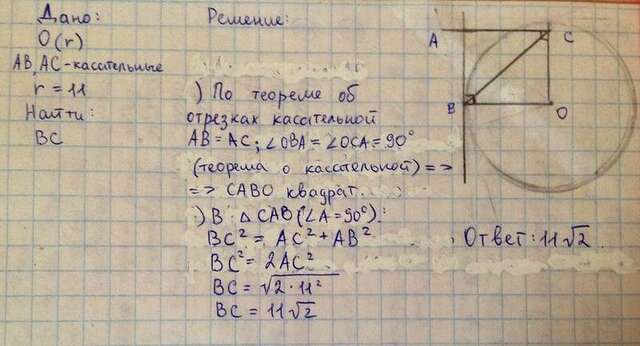 Дано:
O(r)
AB, AC-касательные
r = 11
Найти:
BC
Решение:
) По теореме об
отрезках касательной
AB = AC; ∠OBA = ∠OCA = 90°
(теорема о касательной) =>
=> CABO квадрат.
) В △CAB (∠A = 90°):
BC² = AC² + AB²
BC² = 2AC²
BC = √2 · 11²
BC = 11√2
A
C
B
O
Ответ: 11√2.